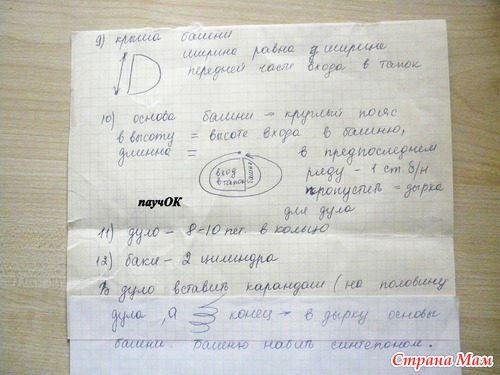 9) крыша башни
ширина равна ширине
передней части входа в тапок
10) основа башни → круглый пояс
в высоту = высоте входа в башню,
длинна =
вход в тапок
башня
в предпоследнем
ряду - 1 ст. б/н
пропустить = дырка
для дула
паучОК
11) дуло - 8-10 пет. в кольцо
12) баки - 2 цилиндра
В дуло вставить карандаш (на половину
дула, а конец → в дырку основы
башни. Башню набить синтепоном.
Страна Мам